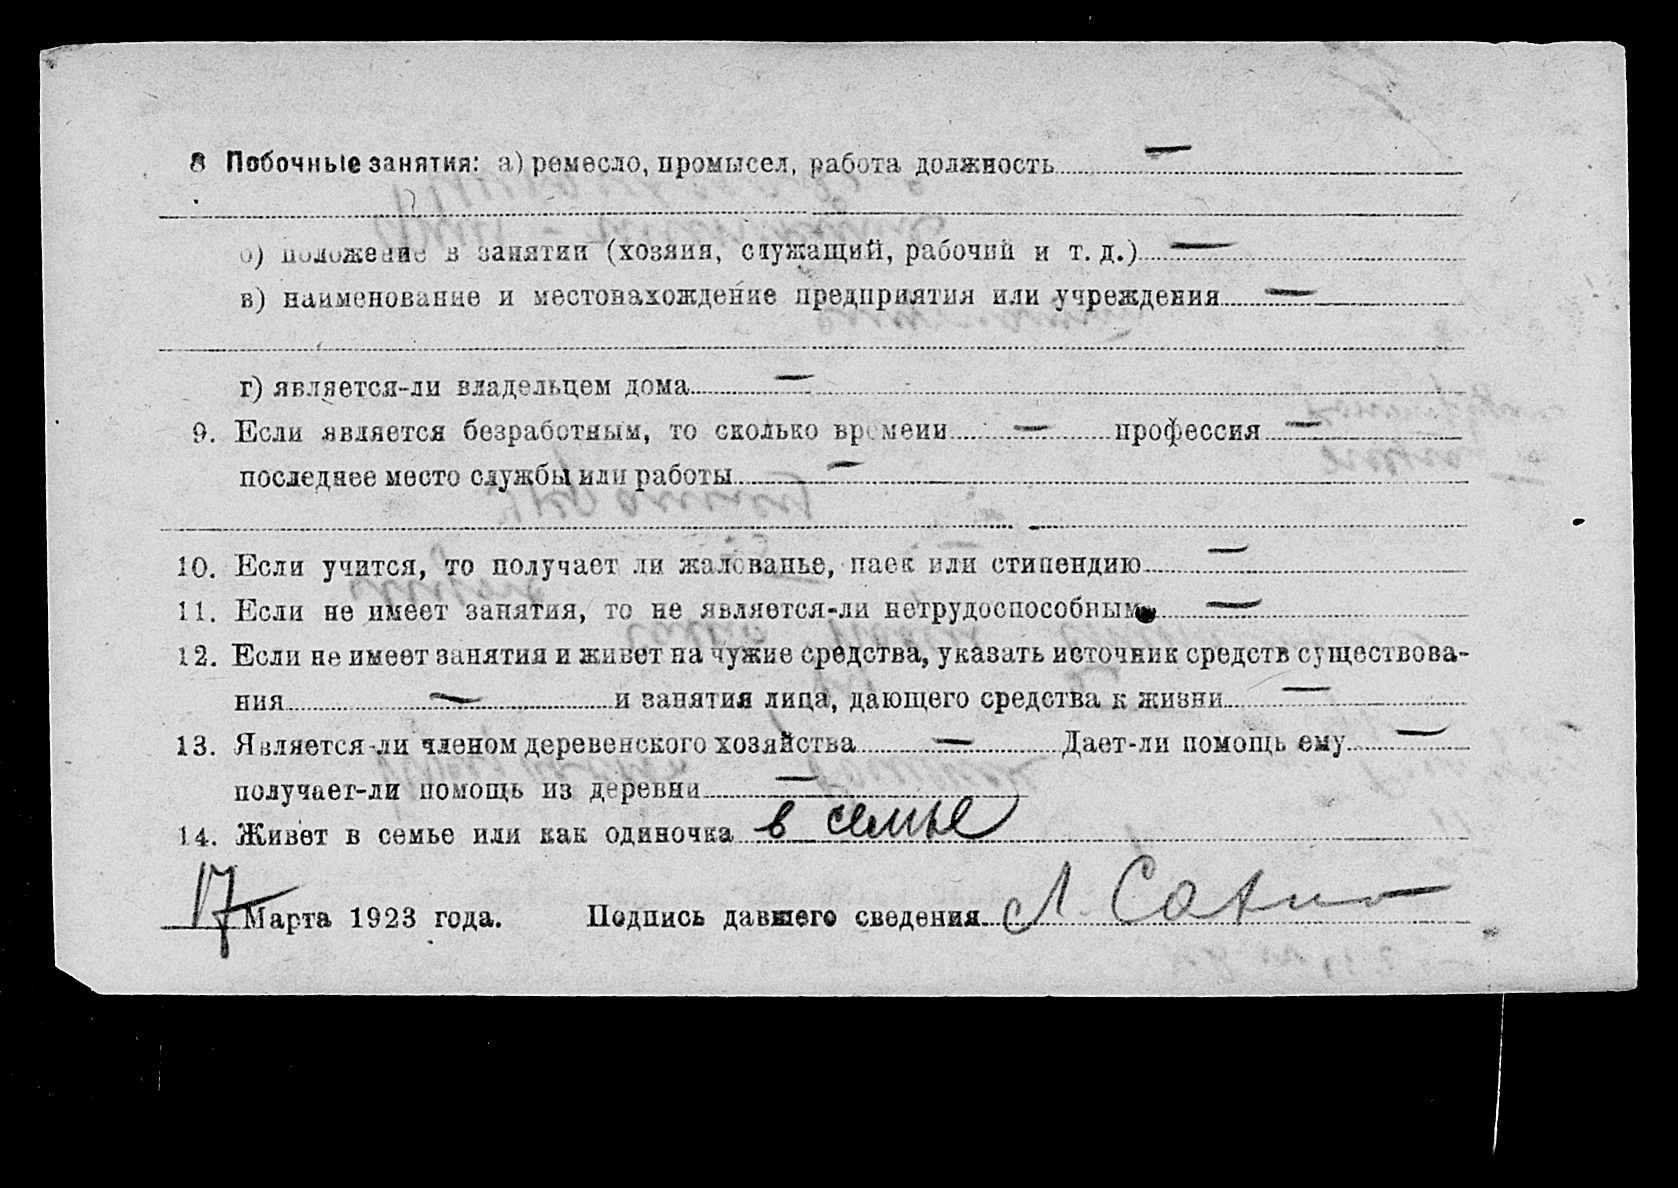 8 Побочные занятия: а) ремесло, промысел, работа должность —
б) положение в занятии (хозяин, служащий, рабочий и т. д.) —
в) наименование и местонахождение предприятия или учреждения —
г) является-ли владельцем дома —
9. Если является безработным, то сколько времени — профессия —
последнее место службы или работы —
10. Если учится, то получает ли жалованье, паек или стипендию —
11. Если не имеет занятия, то не является-ли нетрудоспособным —
12. Если не имеет занятия и живет на чужие средства, указать источник средств существова-
ния — и занятия лица, дающего средства к жизни —
13. Является-ли членом деревенского хозяйства — Дает-ли помощь ему —
получает-ли помощь из деревни —
14. Живет в семье или как одиночка в семье
17 Марта 1923 года. Подпись давшего сведения